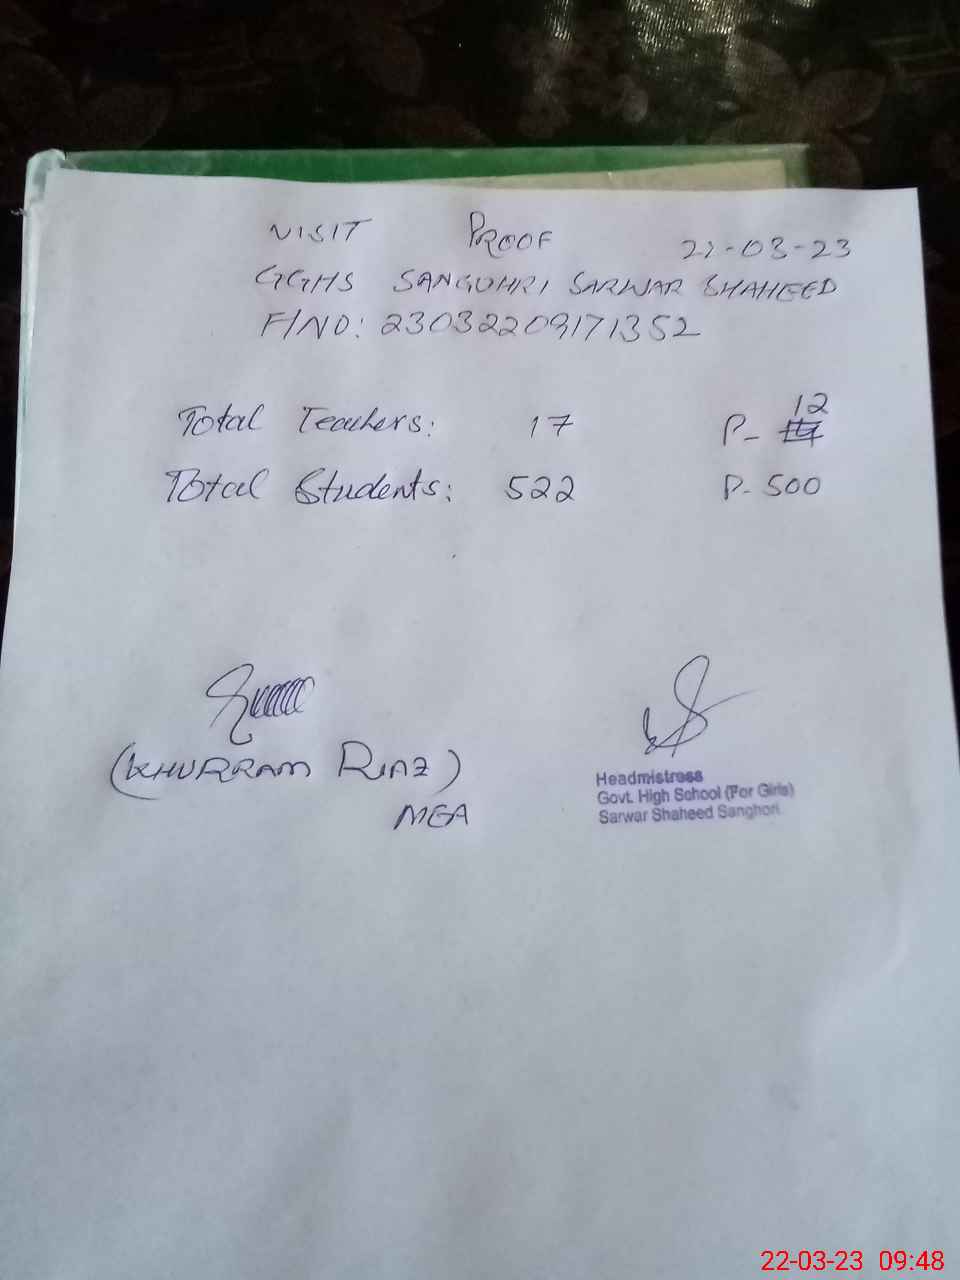 VISIT PROOF 22-03-23
GGHS SANGUHRI SARWAR SHAHEED
F/NO: 23032209171352
Total Teachers: 17 P- 12
Total Students: 522 P- 500
(KHURRAM RIAZ)
MEA
Headmistress
Govt. High School (For Girls)
Sarwar Shaheed Sanghori
22-03-23 09:48